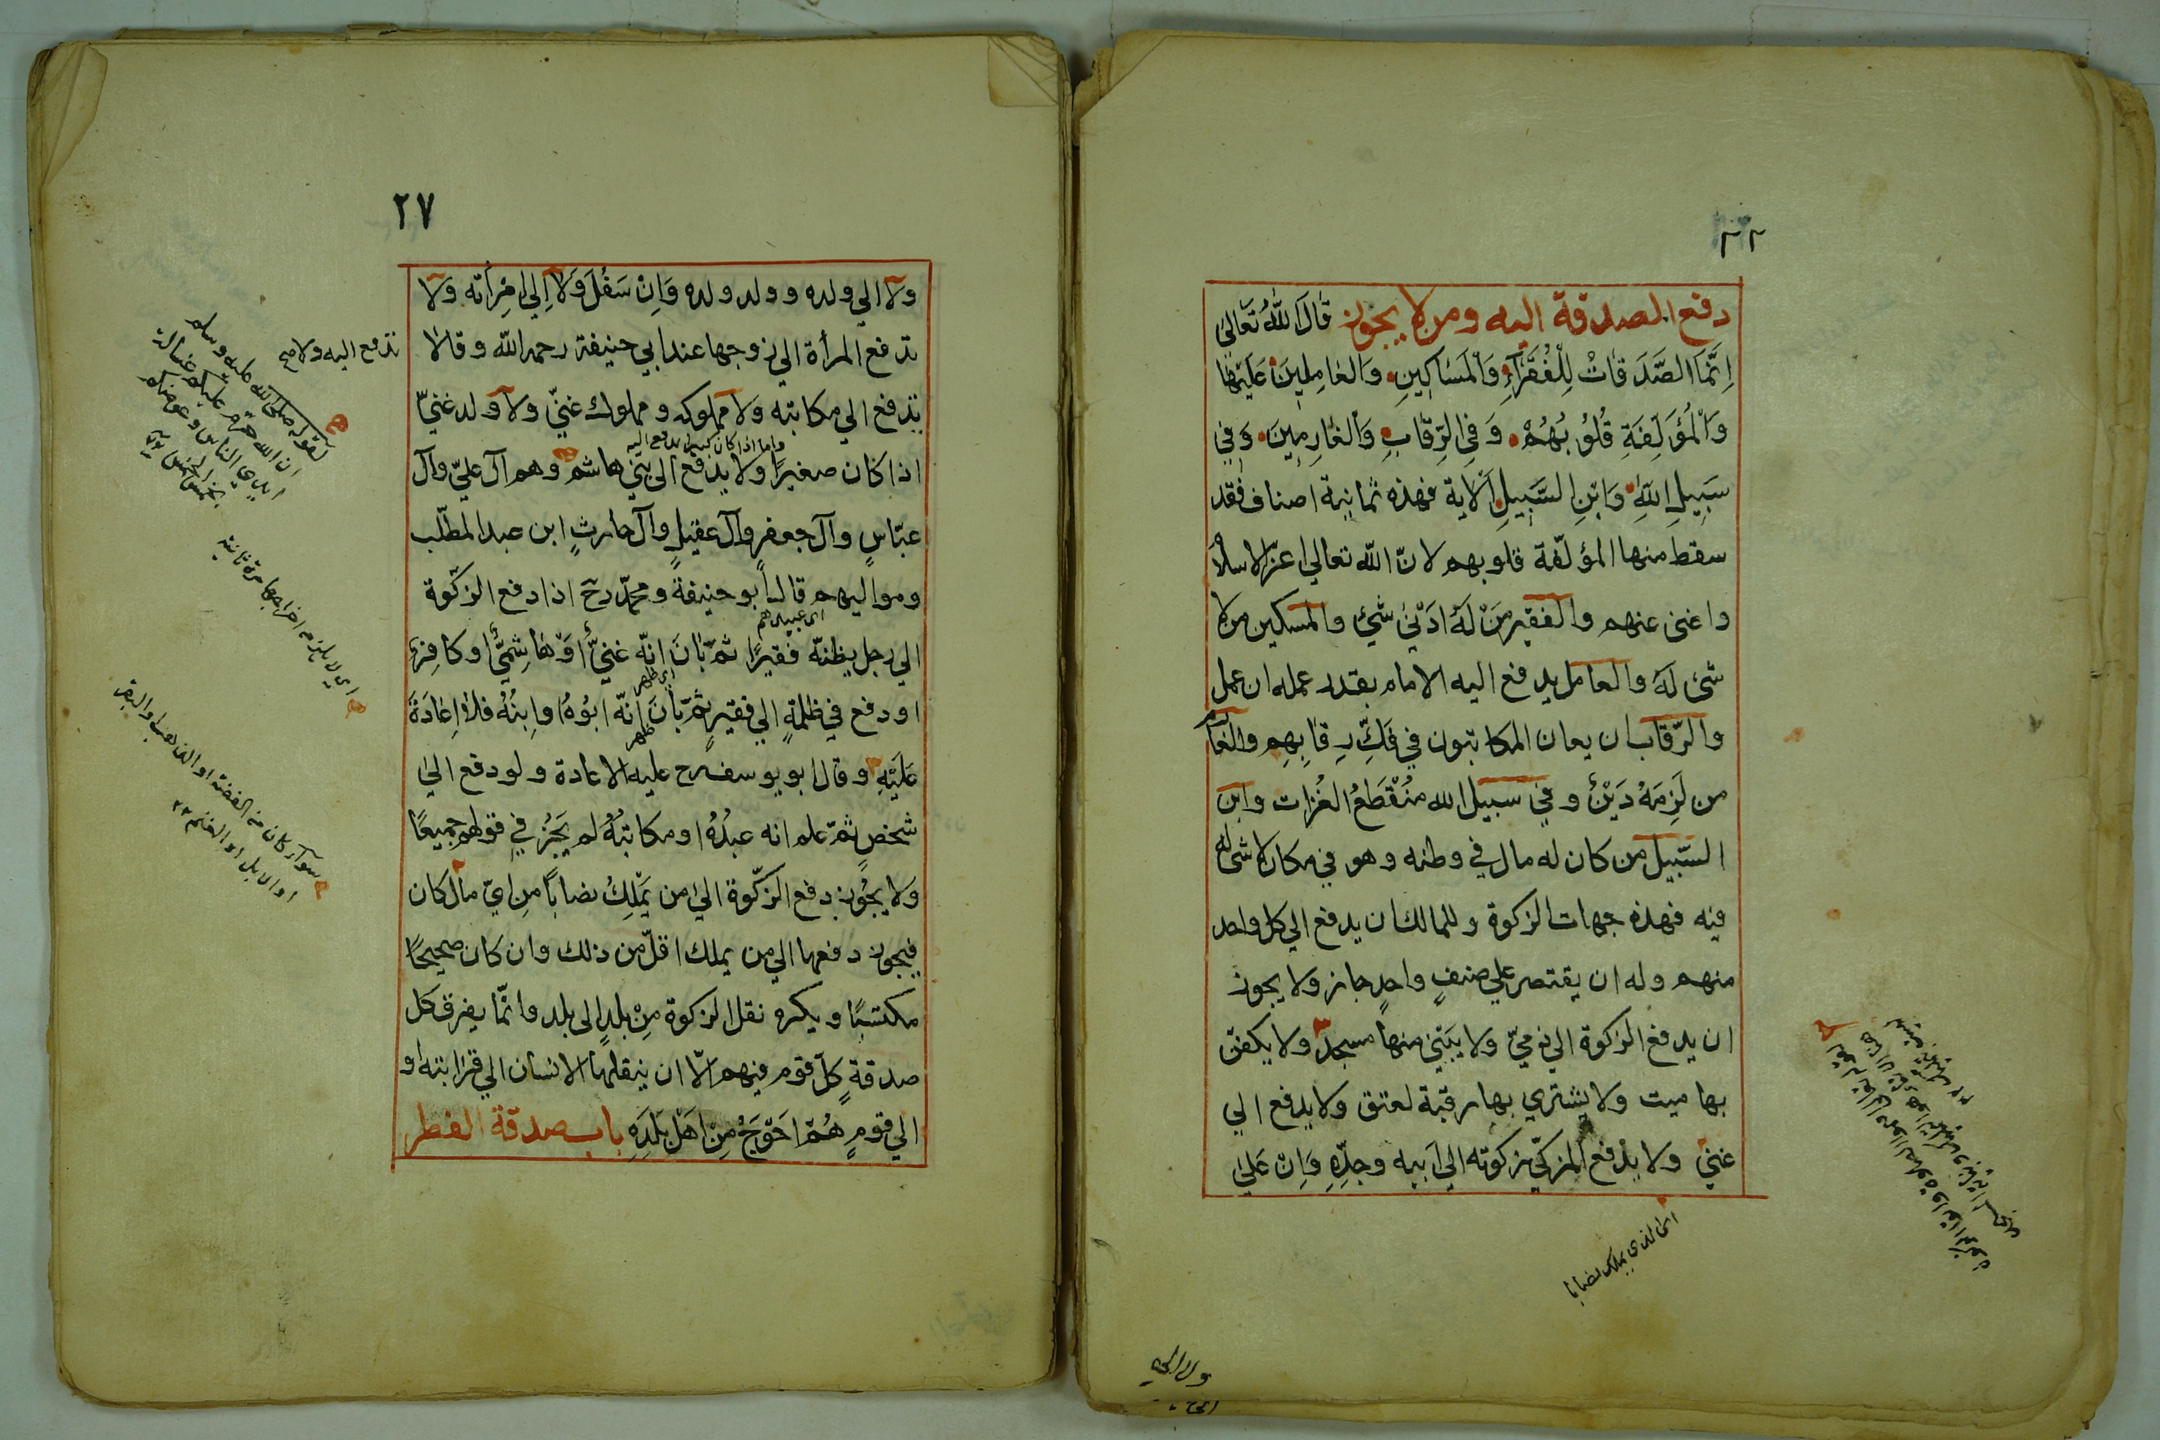 دفع الصدقة اليه ومن لا يجوز قَالَ اللّٰهُ تَعَالٰى
اِنَّمَا الصَّدَقَاتُ لِلْفُقَرَآءِ وَالْمَسَاكِينِ وَالعَامِلِينَ عَلَيْهَا
وَالْمُؤَلَّفَةِ قُلُوبُهُمْ وَفِي الرِّقَابِ وَالْغَارِمِينَ وَفِي
سَبِيلِ اللّٰهِ وَابْنِ السَّبِيلِ اَلْاٰية فهذه ثمانية اصناف فقد
سقط منها المؤلّفة قلوبهم لانّ اللّه تعالي اعزّ الاسلام
واغنى عنهم والفقير مَنْ لَهُ اَدْنٰي شيئ والمسكين من لا
شئ لَهُ والعامل يدفع اليه الامام بقدر عمله ان عمل
والرّقاب ان يعان المكاتبون في فَكِّ رِقَابِهِم والغارم
من لَزِمَهُ دَيْنٌ وفي سبيل الله مُنْقَطَعُ الغُزات وابن
السّبيل من كان له مال في وطنه وهو في مكان لا شئ له
فيه فهذه جهات الزكوة وللمالك ان يدفع الي كل واحد
منهم وله ان يقتصر علي صنفٍ واحدٍ جاز ولا يجوز
ان يدفع الزكوة الي ذميّ ولا يَبْتَني منها مسجدٌ ولا يكفن
بها ميت ولا يشتري بها رقبة لعتق ولا يدفع الي
غنيّ ولا يدفع المزكّي زكوته الي اَبيه وجدِّهِ وَاِنْ عَلٰي
اى الذى يملك نصابا
ولا الي
٢٧
ولاَ الي ولده وولد ولده وَاِنْ سَفُلَ وَلاَ اِلي امْرِأَته وَلا
تدفع المرأة الي زوجها عند ابي حنيفة رحمه اللّه وقالا
تدفع اليه ولا
تدفع الي مكاتبه ولا مملوكه ومملوك غنيّ ولا وَلد غنيّ
واما اذا كان كبيرا يدفع اليه
اذا كان صغيرًا ولا يدفع الى بَنِي هاشم وهم آل عليّ وآل
عبّاسٍ وآل جعفرٍ وآل عقيلٍ وآل حارثٍ ابن عبد المطّلب
ومواليهم قال ابو حنيفةَ ومحمّد رح اذا دفع الزكّوة
اى عبيدهم
الي رجل يظنّه فقيرًا ثمّ بَانَ انّه غنيٌّ أَوْ هَاشِمِيٌّ او كافِرٌ
اى ظهر
اودفع في ظلمةٍ الي فقيرٍ ثمّ بَانَ انّه ابُوهُ او ابنُهُ فلا اِعَادَةَ
ظهر
عَلَيْهِ وقال ابو يوسف رح عليه الاعادة ولو دفع الي
شخصٍ ثمّ علم انه عبدُهُ او مكاتبُهُ لم يَجُزْ في قولهم جميعًا
ولا يجُوز دفع الزكّوة الي من يَمْلِكُ نصابًا مِن ايّ مالٍ كان
فيجوز دفعها الي من يملك اقلّ من ذلك وان كان صحيحًا
مكتسبًا ويكره نقل الزكوة مِنْ بلدٍ الى بلد وانّما يفرق كل
صدقةٍ كلّ قوم فيهم الاّ ان ينقلها الانسان الي قرابته او
الي قومٍ هُمْ احْوَجُ مِنْ اَهْلِ بَلَدِهِ باب صدقة الفطر
لقوله صلى الله عليه وسلم
ان الله حرّم عليكم غسالة
ايدي الناس وعوضكم
بخمس الخمس
اى لا يلزم اخراجها مرة ثانية
سوآء كان من الفضة او الذهب او البقر
او الابل او الغنم